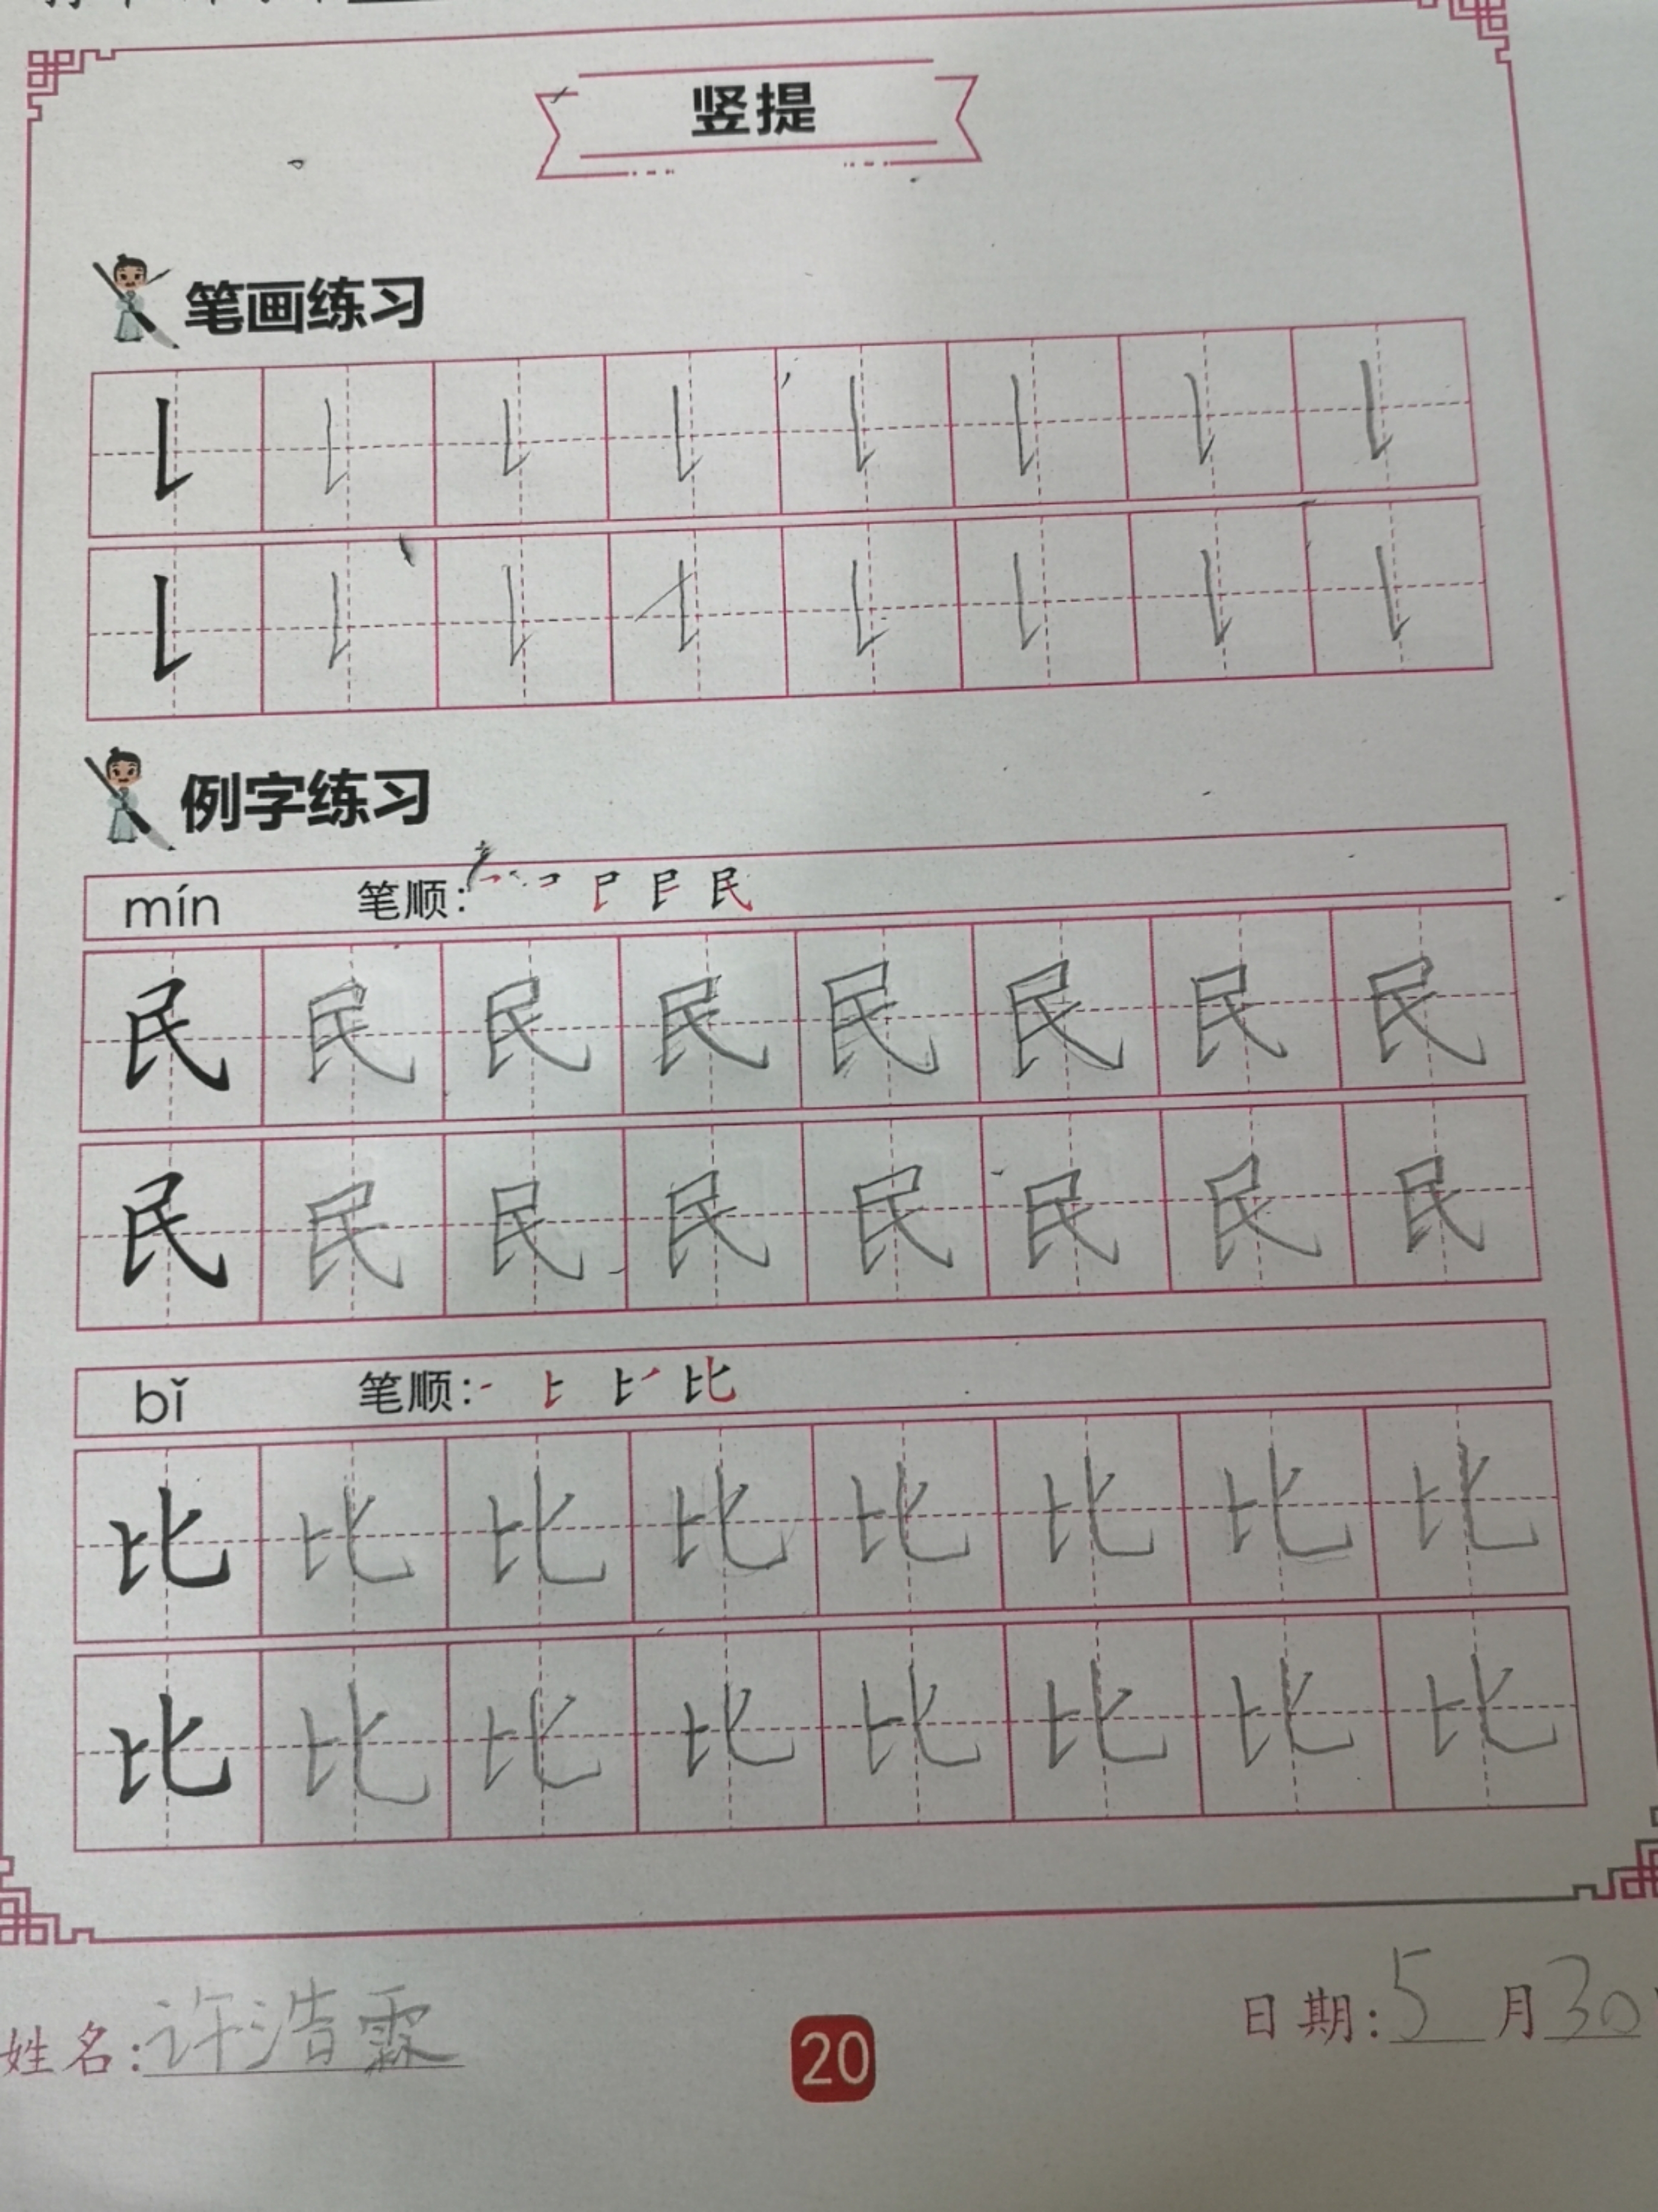 竖提
笔画练习
例字练习
mín 笔顺：
民 民 民 民 民 民 民 民
民 民 民 民 民 民 民 民
bǐ 笔顺：
比 比 比 比 比 比 比 比
比 比 比 比 比 比 比 比
姓名：许浩霖 20 日期：5月30